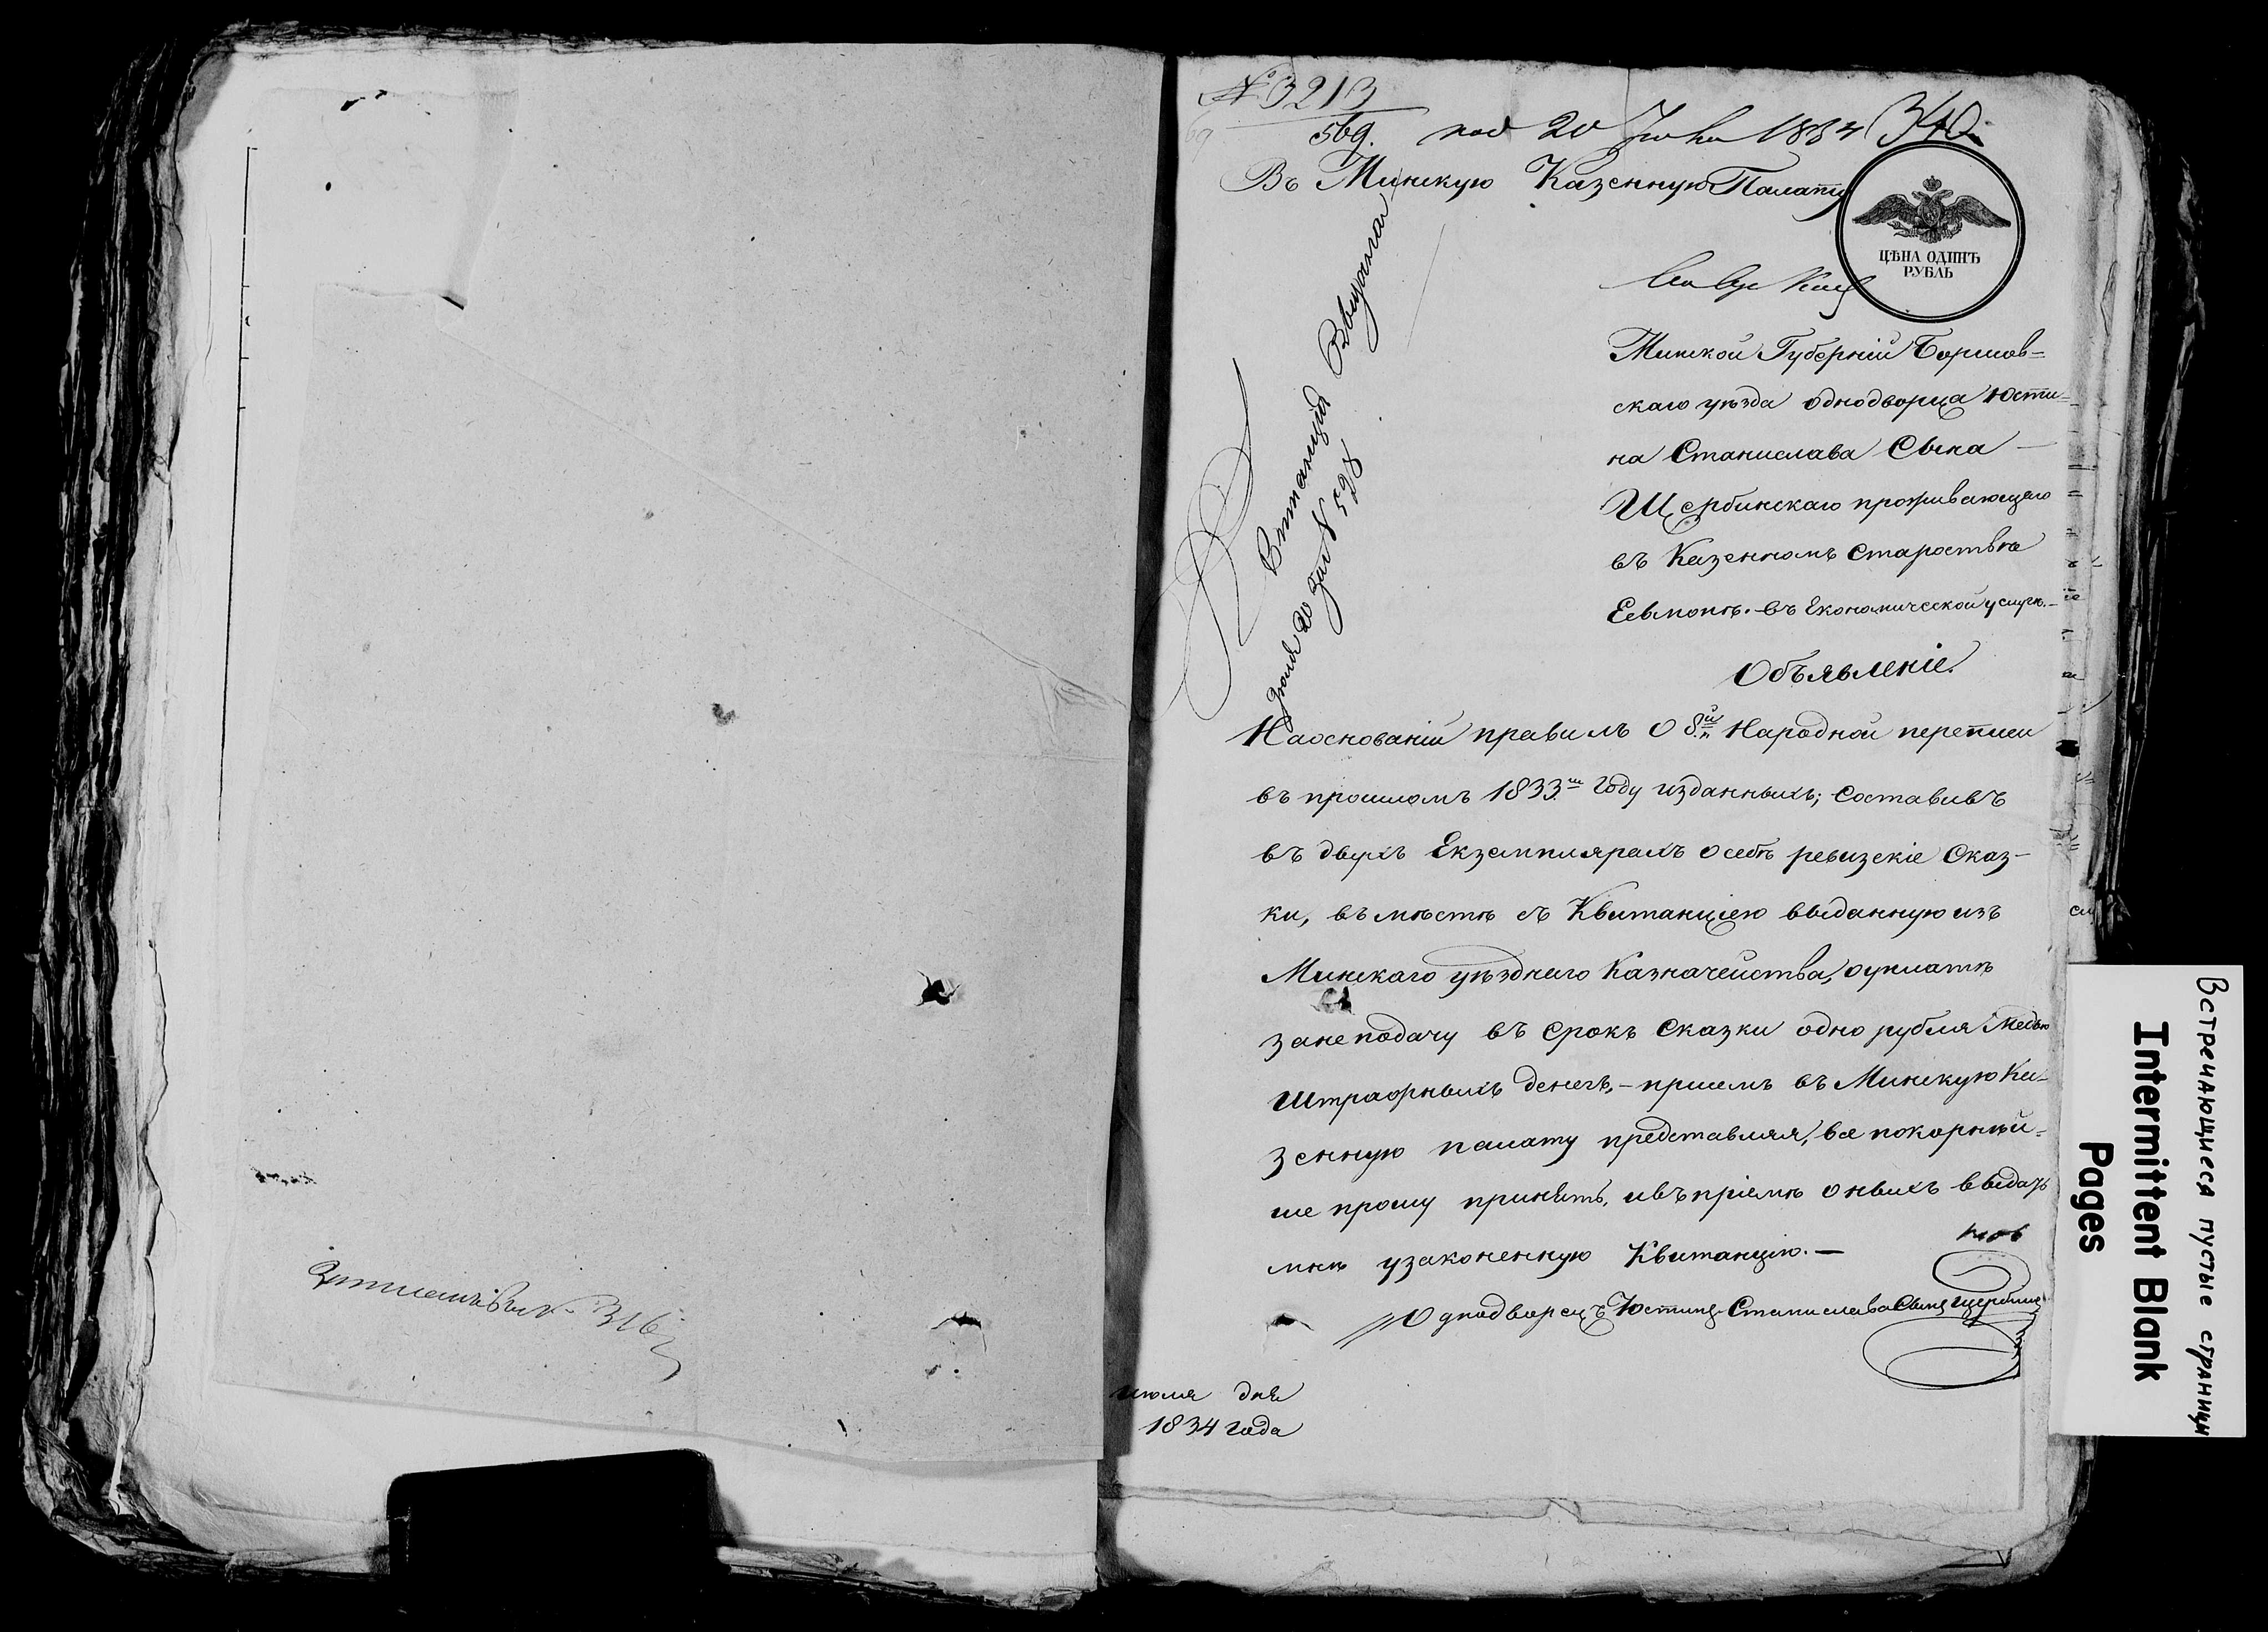 № 3213
569. под 20 Июля 1834 340.
Въ Минскую Казенную Палату
ЦѢНА ОДИНЪ
РУБЛЬ
Минской Губерніи Борисов=
скаго уѣзда однодворца Юсти=
на Станислава Сына —
Щербинскаго проживающаго
въ Казенномъ Староствѣ
въ Економической
Объявленіе.
На основаніи правилъ о 8й Народной переписи
въ прошломъ 1833м Году изданныхъ; составивъ
въ двухъ Екземплярахъ о себѣ ревизскіе Сказ-
ки, въ мѣстѣ съ Квитанціею выданную изъ
Минскаго уѣзднаго Казначейства, о уплатѣ
за не подачу въ срокъ Сказки одно рубля Медью
Штрафныхъ денегъ, - при семъ въ Минскую Ка-
зенную палату представляя, всепокорнѣй-
ше прошу принять, и въ пріемѣ оныхъ выдать
мнѣ узаконенную Квитанцію. —
Однодворецъ Юстинъ Станислава Сынъ
июля дня
1834 года
Квитанція
Июля 20 за № 598
316
Встречающиеся пустые страницы
Intermittent Blank
Pages